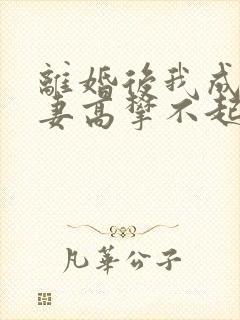 離婚後我成
妻高攀不起
凡華公子